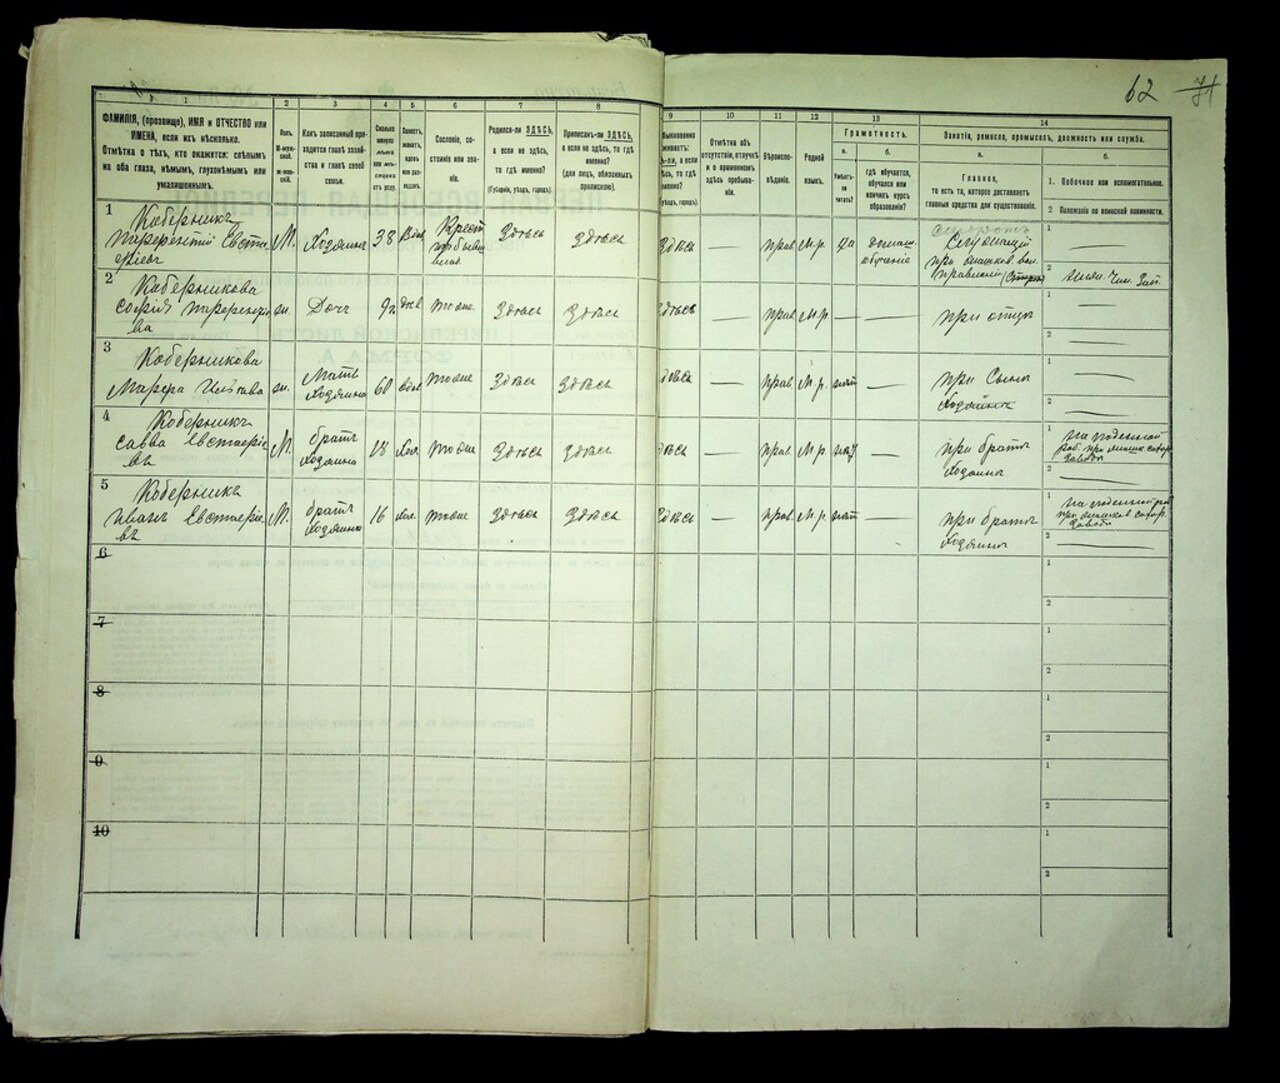 62 71
1
ФАМИЛІЯ, (прозвище), ИМЯ и ОТЧЕСТВО или
ИМЕНА, если ихъ нѣсколько.
Отмѣтка о тѣхъ, кто окажется: слѣпымъ
на оба глаза, нѣмымъ, глухонѣмымъ или
умалишеннымъ.
2
Полъ.
М-муж-
ской.
ж-жен-
скій.
3
Какъ записанный при-
ходится главѣ хозяй-
ства и главѣ своей
семьи.
4
Сколько
минуло
лѣтъ
или мѣ-
сяцевъ
отъ роду.
5
Холостъ,
женатъ,
вдовъ
или раз-
веденъ.
6
Сословіе, со-
стояніе или зва-
ніе.
7
Родился-ли ЗДѢСЬ,
а если не здѣсь,
то гдѣ именно?
(Губернія, уѣздъ, городъ).
8
Приписанъ-ли ЗДѢСЬ,
а если не здѣсь, то гдѣ
именно?
(для лицъ, обязанныхъ
припискою).
9
быкновенно
живаетъ:
ь-ли, а если
ѣсь, то гдѣ
именно?
уѣздъ, городъ).
10
Отмѣтка объ
отсутствіи, отлучкѣ
и о временномъ
здѣсь пребыва-
ніи.
11
Вѣроиспо-
вѣданіе.
12
Родной
языкъ.
13
Грамотность.
а.
Умѣетъ-
ли
читать?
б.
гдѣ обучается,
обучался или
кончилъ курсъ
образованія?
14
Занятіе, ремесло, промыселъ, должность или служба.
а.
Главное,
то есть то, которое доставляетъ
главныя средства для существованія.
б.
1. Побочное или вспомогательное.
2 Положеніе по воинской повинности.
1
Коберникъ
Парфентій Евста-
фіевъ
М.
Хозяинъ
38
Вдов
Крест
Здѣсь
Здѣсь
Здѣсь
—
прав
М.р.
да
домаш.
обученіе
Служащій
1 —
2
2
Коберникова
Софія Парфентіе-
ва
ж.
Дочь
тоже
Здѣсь
Здѣсь
Здѣсь
—
прав
М.р.
—
—
при отцѣ
1 —
2 —
3
Коберникова
Марфа
ж.
Мать
Хозяина
60
вдов
тоже
Здѣсь
Здѣсь
Здѣсь
—
прав.
М.р.
нѣт
—
при Сынѣ
Хозяинѣ
1 —
2 —
4
Коберникъ
Савва Евстафіе-
въ
М.
братъ
Хозяина
18
Хол.
тоже
Здѣсь
Здѣсь
Здѣсь
—
прав.
М.р.
—
при братѣ
Хозяинѣ
1 на поденной
заводѣ
2 —
5
Коберникъ
Иванъ Евстафіе-
въ
М.
братъ
Хозяина
16
хол.
тоже
Здѣсь
Здѣсь
Здѣсь
—
прав.
М.р.
нѣт
—
при братѣ
Хозяинѣ
1 на поденной
заводѣ
2 —
6
1
2
7
1
2
8
1
2
9
1
2
10
1
2